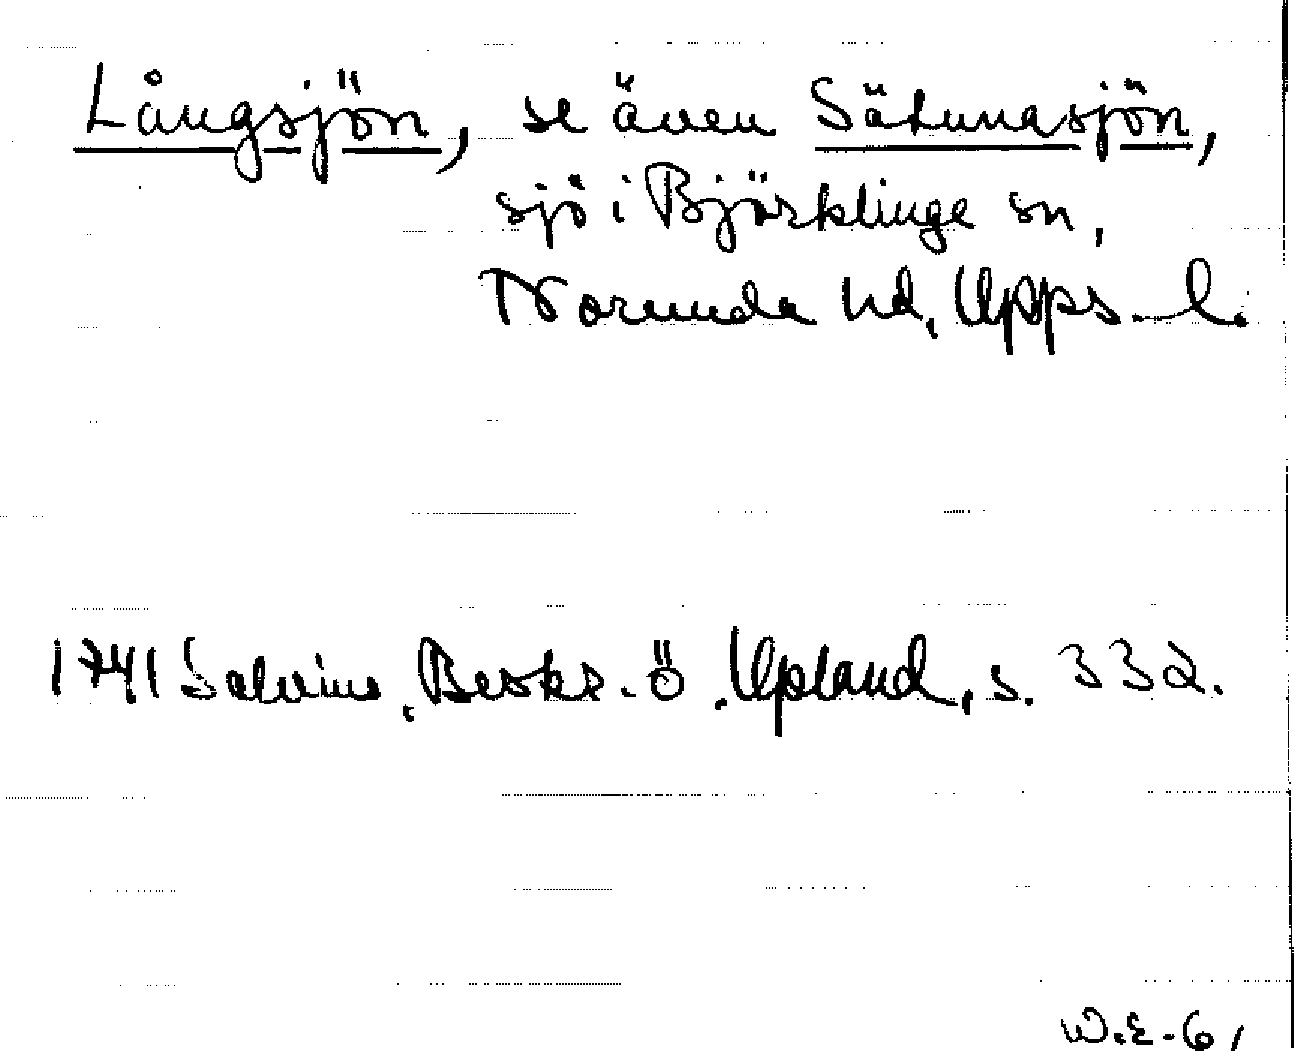 Långsjön, se även Sätunasjön,
sjö i Björklinge sn,
Norunda hd, Upps. l.
1741 Salvius, Beskr. ö. Upland, s. 332.
W.E-61